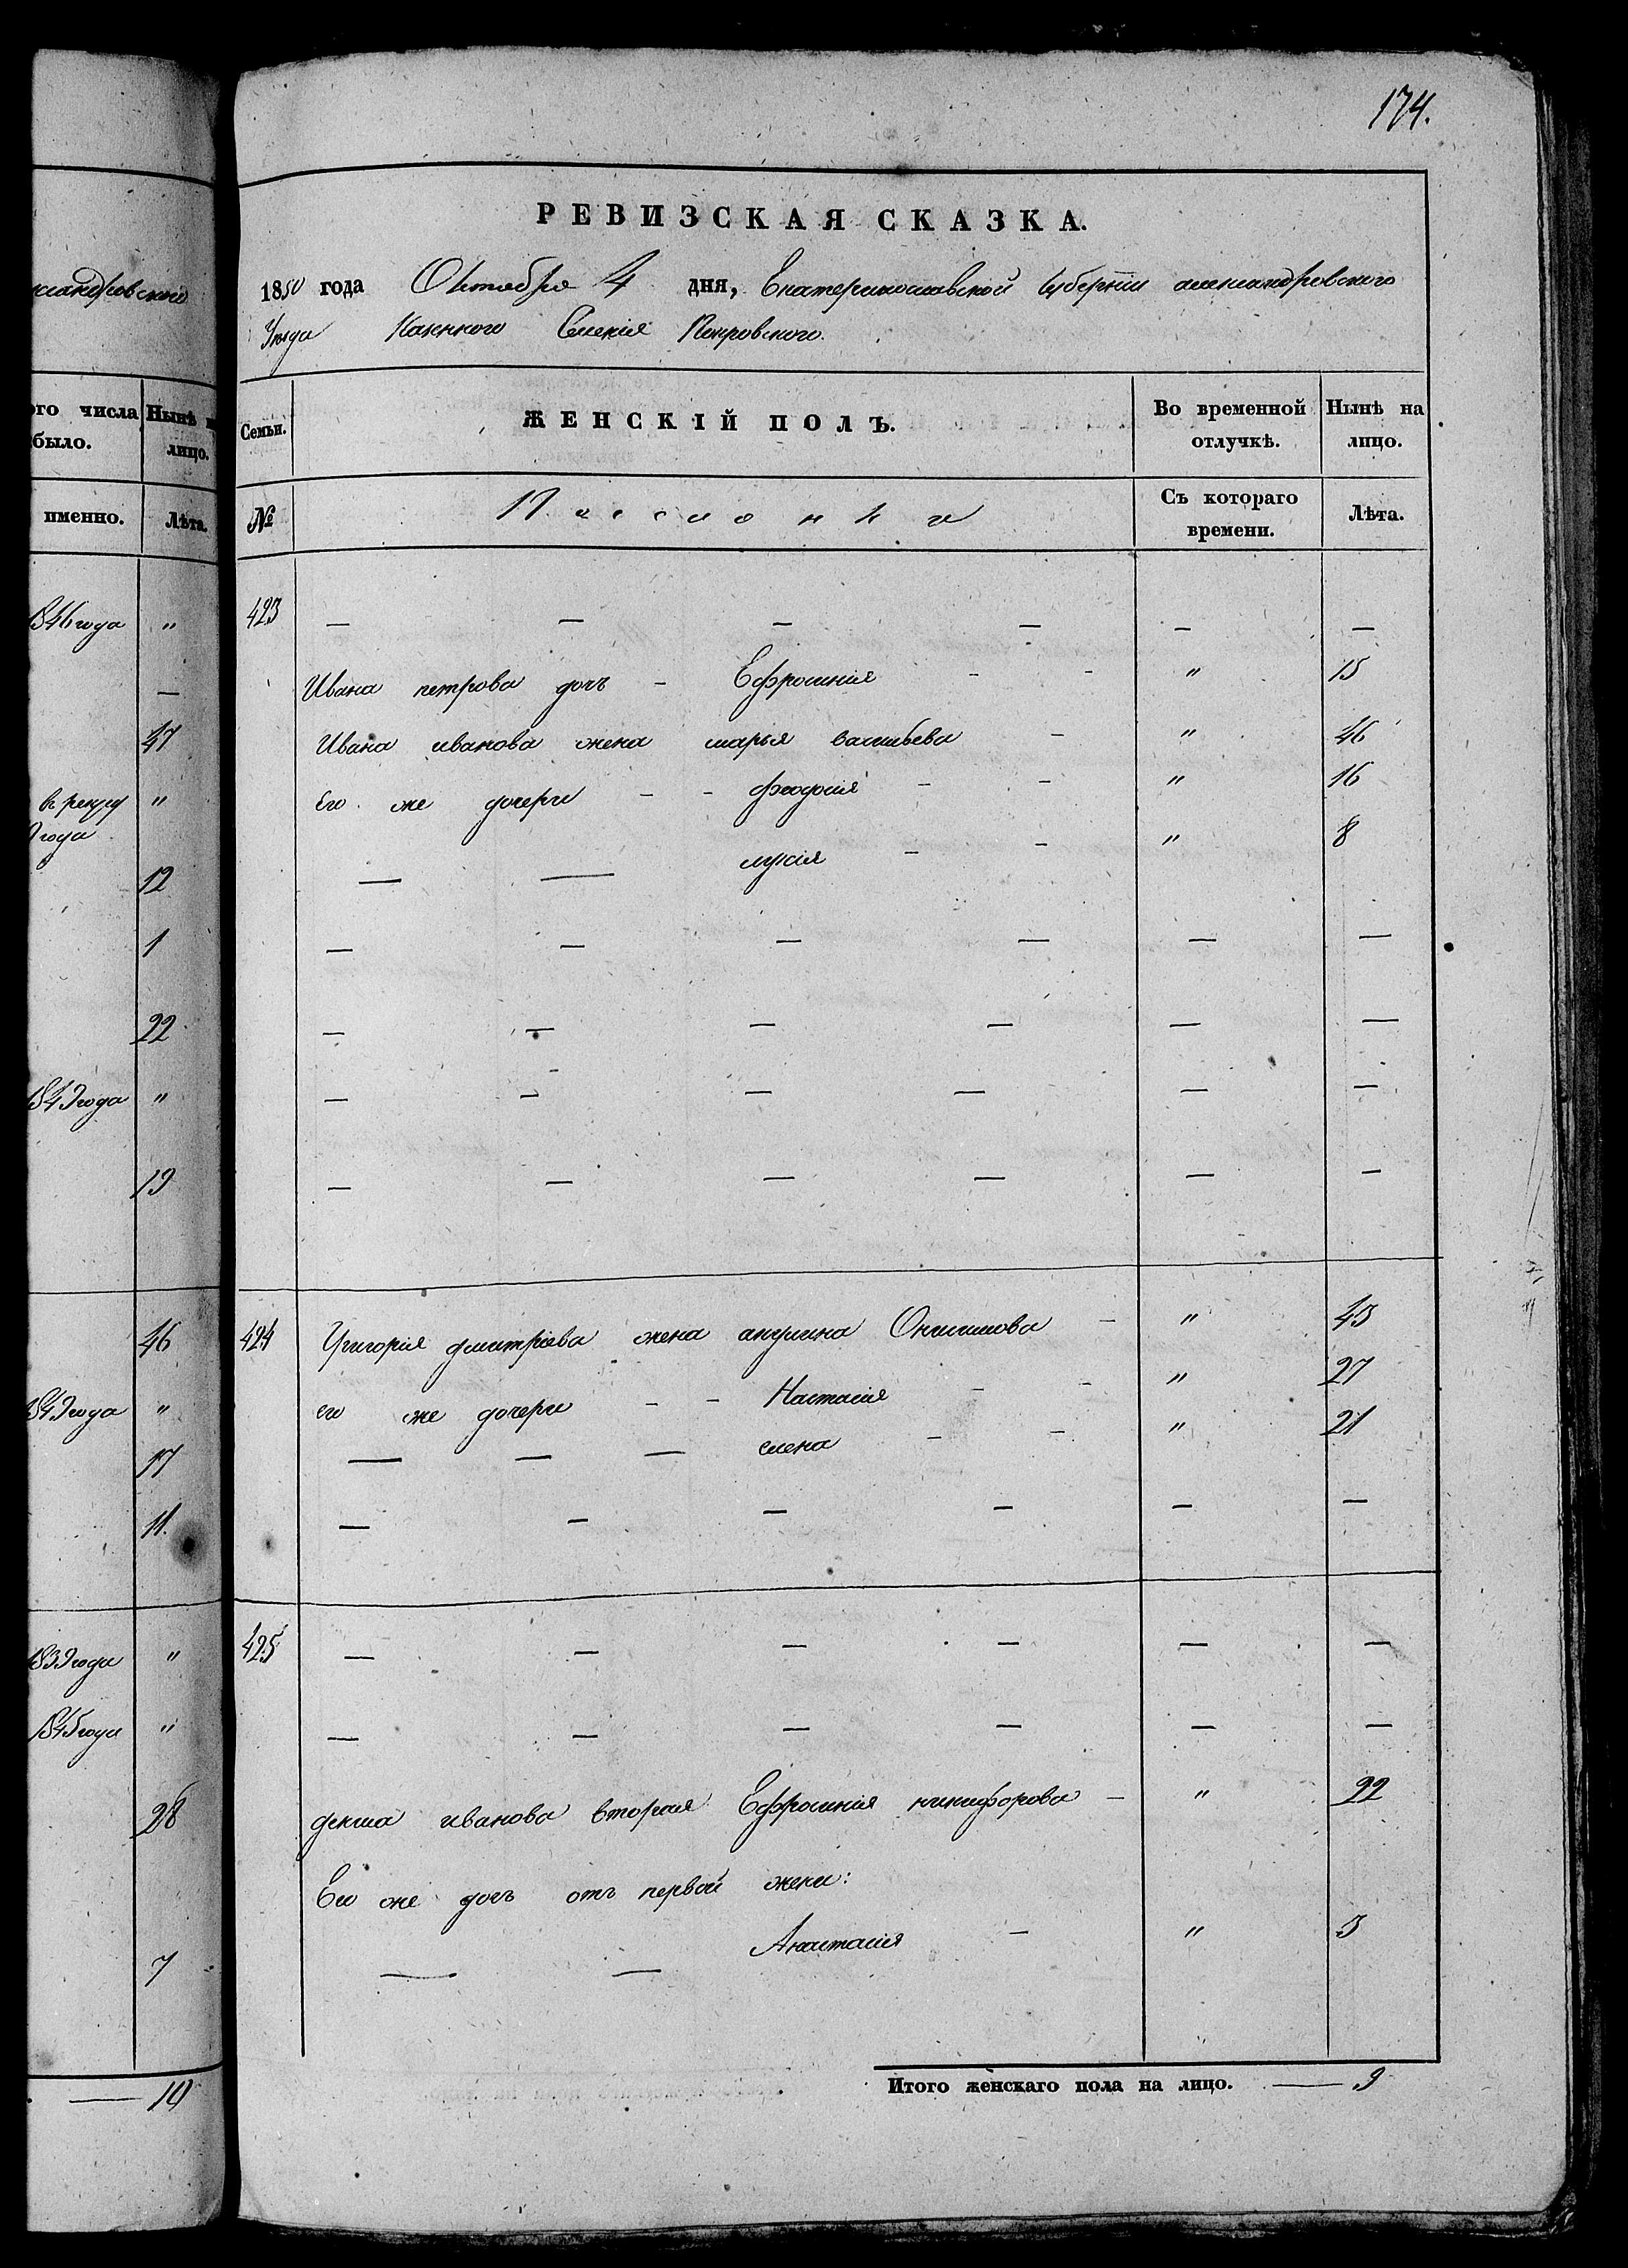 174.
ксандровской
ого числа
было.
Нынѣ
лицо.
именно.
Лѣта.
1846 года "
—
47
в рекру "
9 года
12
1
22
1849 года "
19
46
1849 года "
17
11.
1839 года "
1845 года "
28
7
— 10
РЕВИЗСКАЯ СКАЗКА.
1850 года Октобра 4 дня, Екатеринославской губерніи александровского
Уезда Казенного Селенія Покровского.
Семьи. ЖЕНСКІЙ ПОЛЪ. Во временной отлучкѣ. Нынѣ на лицо.
№ Съ котораго времени. Лѣта.
423 — — — — — —
Ивана петрова дочъ - Ефросинія - - " 15
Ивана иванова жена марья василъева - " 46
Его же дочери - - феодосія - - " 16
— — лукія - - " 8
— — — — — —
— — — — — —
— — — — — —
— — — — — —
424 Григорія дмитріева жена акулина Онисимова - " 43
его же дочери - - Настасія - - " 27
— — — елена - - " 21
— — — — — —
425 — — — — — —
— — — — — —
иванова вторая Ефросинія никифорова - " 22
Его же дочъ отъ первой жени:
— — Анастасія - " 3
Итого женскаго пола на лицо. — 9